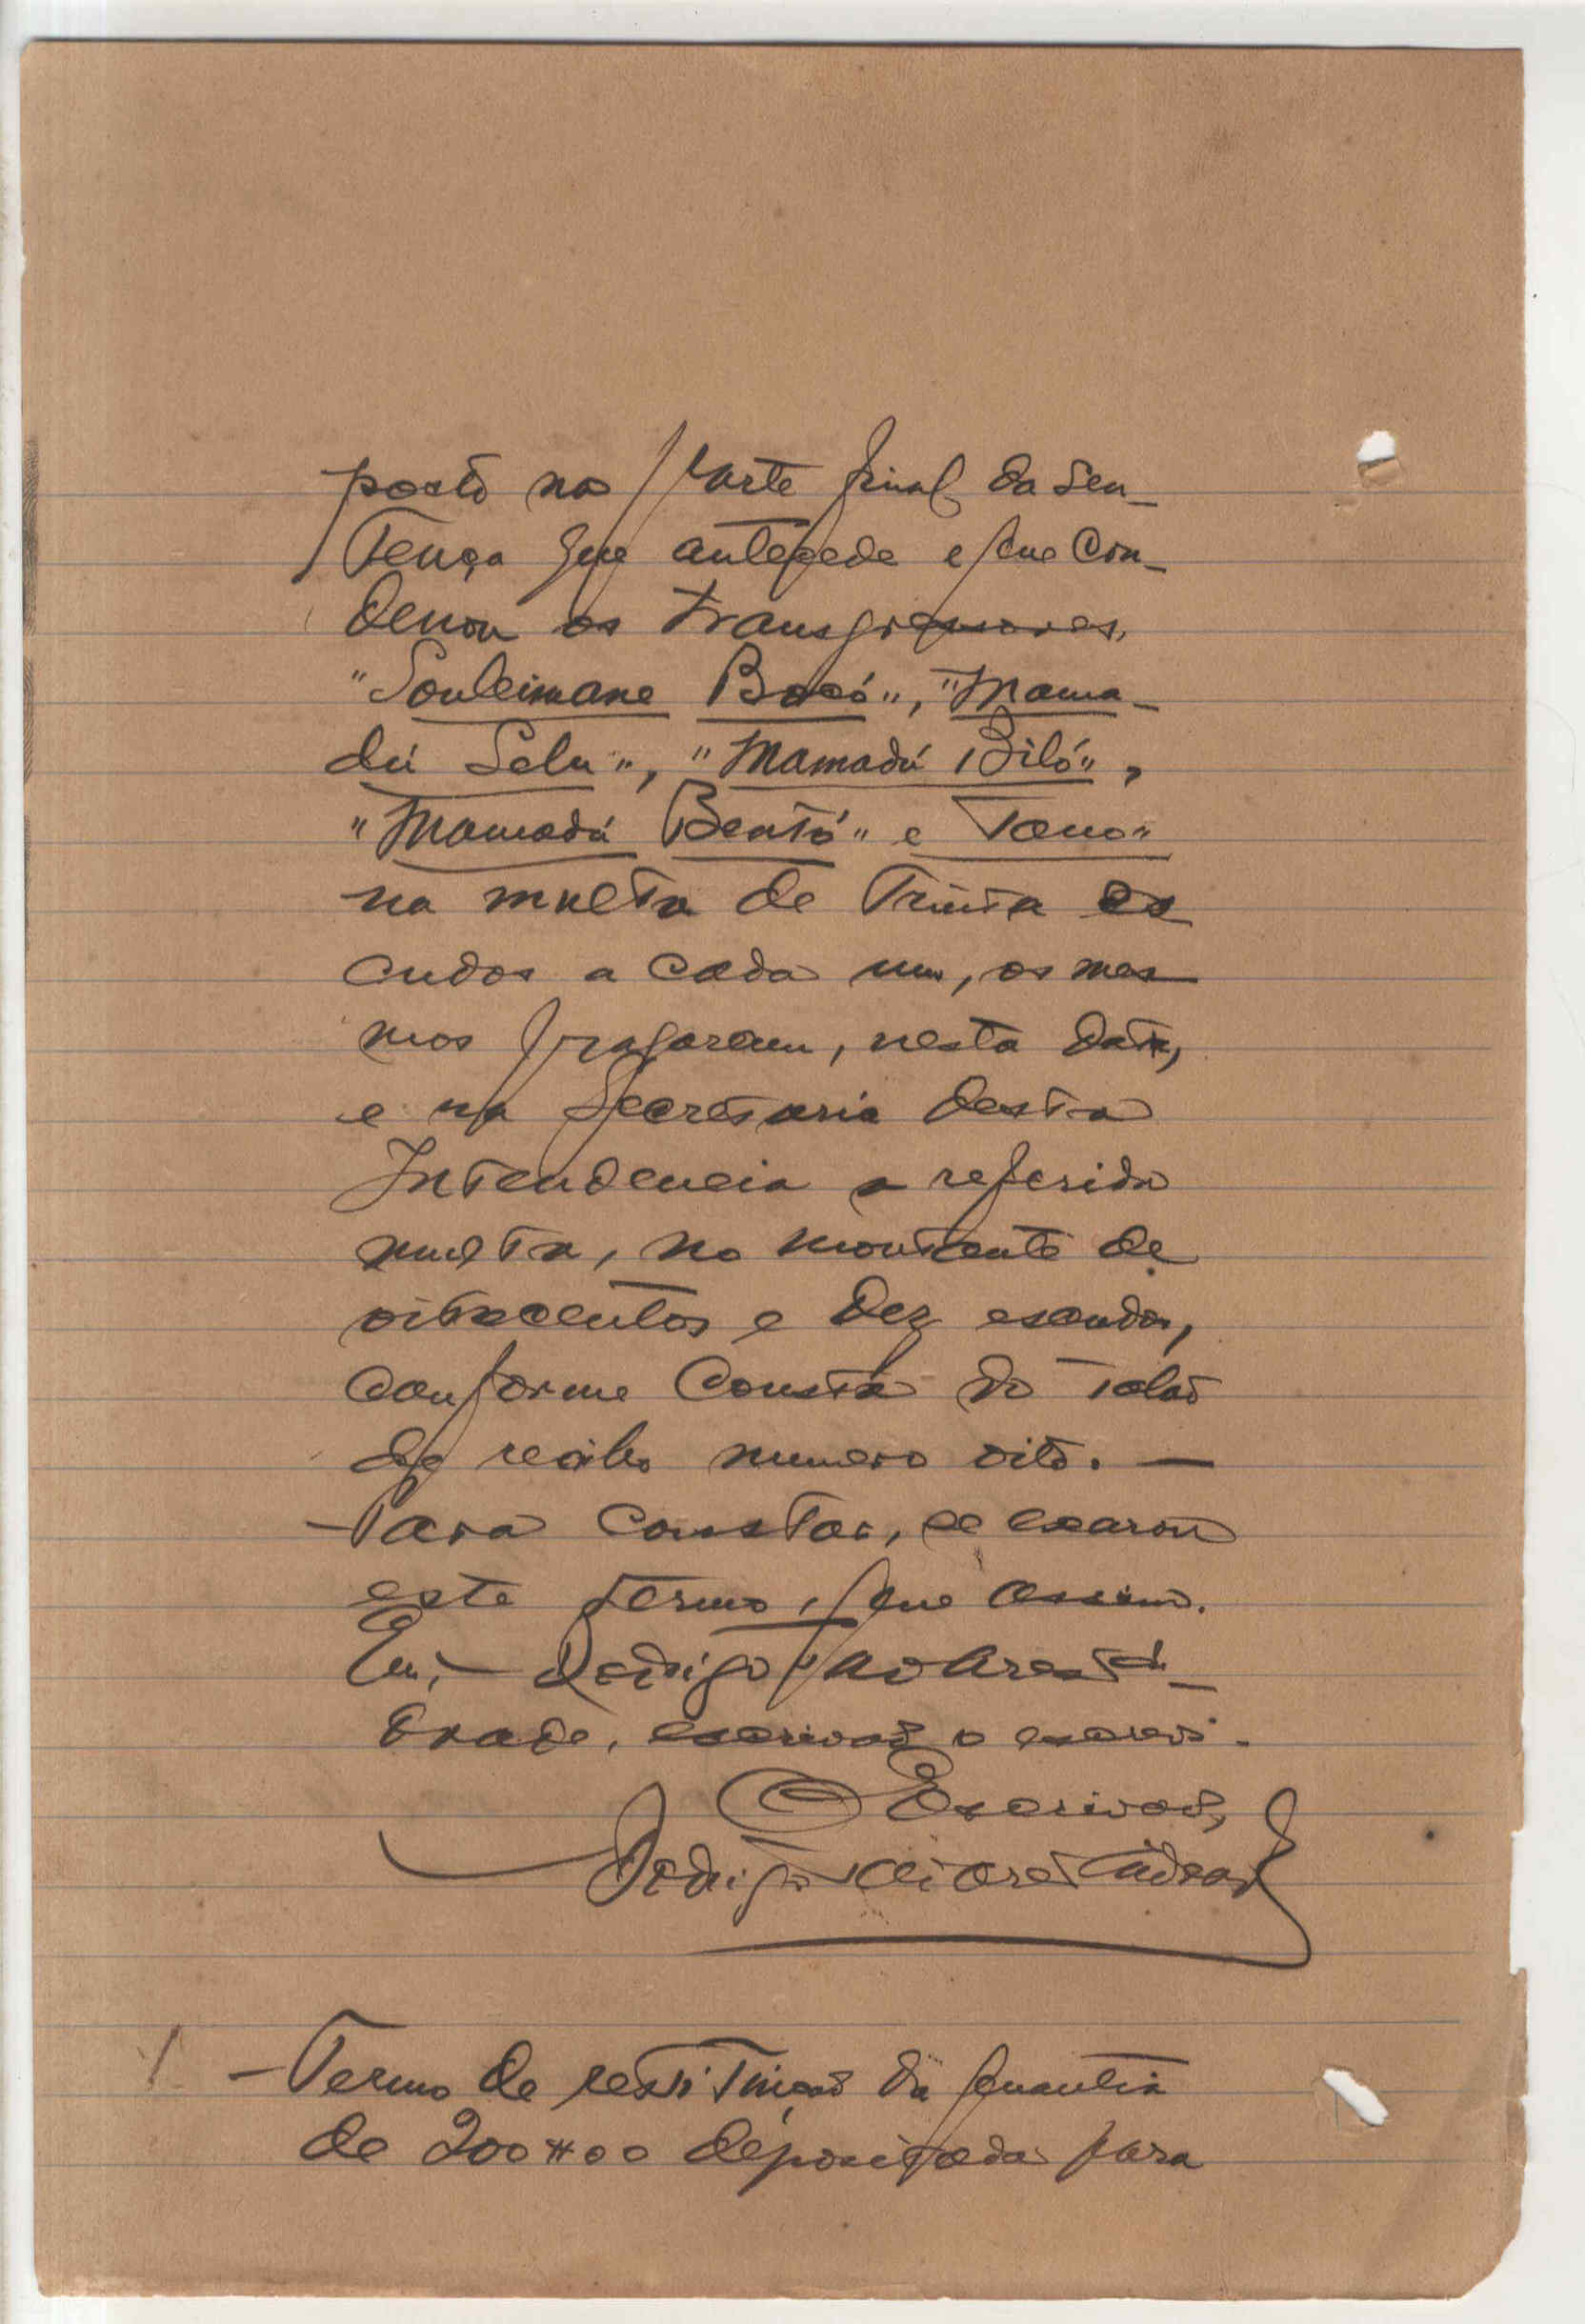 posto na parte final da sen-
tença que antecede e que con-
denou os transgressores,
"Souleimane Bocó", "Mama-
dú Selu", "Mamadú Biló",
"Mamadú Bentó" e Tano"
na multa de trinta es
cudos a cada um, os mes
mos pagaram, nesta data,
e na Secretaria desta
Intendencia a referida
multa, no montante de
oitocentos e dez escudos,
conforme consta do talão
de recibo numero oito. —
Para constar, se exarou
este termo, que assino.
Eu, — Rodrigo Tavares An-
drade, escrivão o escrevi.
O Escrivão,
Rodrigo Tavares Andrade
— Termo de restituição da quantia
de 200$00 depositada para